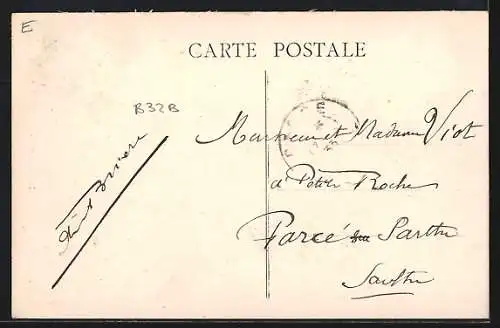 E
CARTE POSTALE
B32B
Monsieur et Madame Viot
a Petite Roche
Parcé sur Sarthe
Sarthe